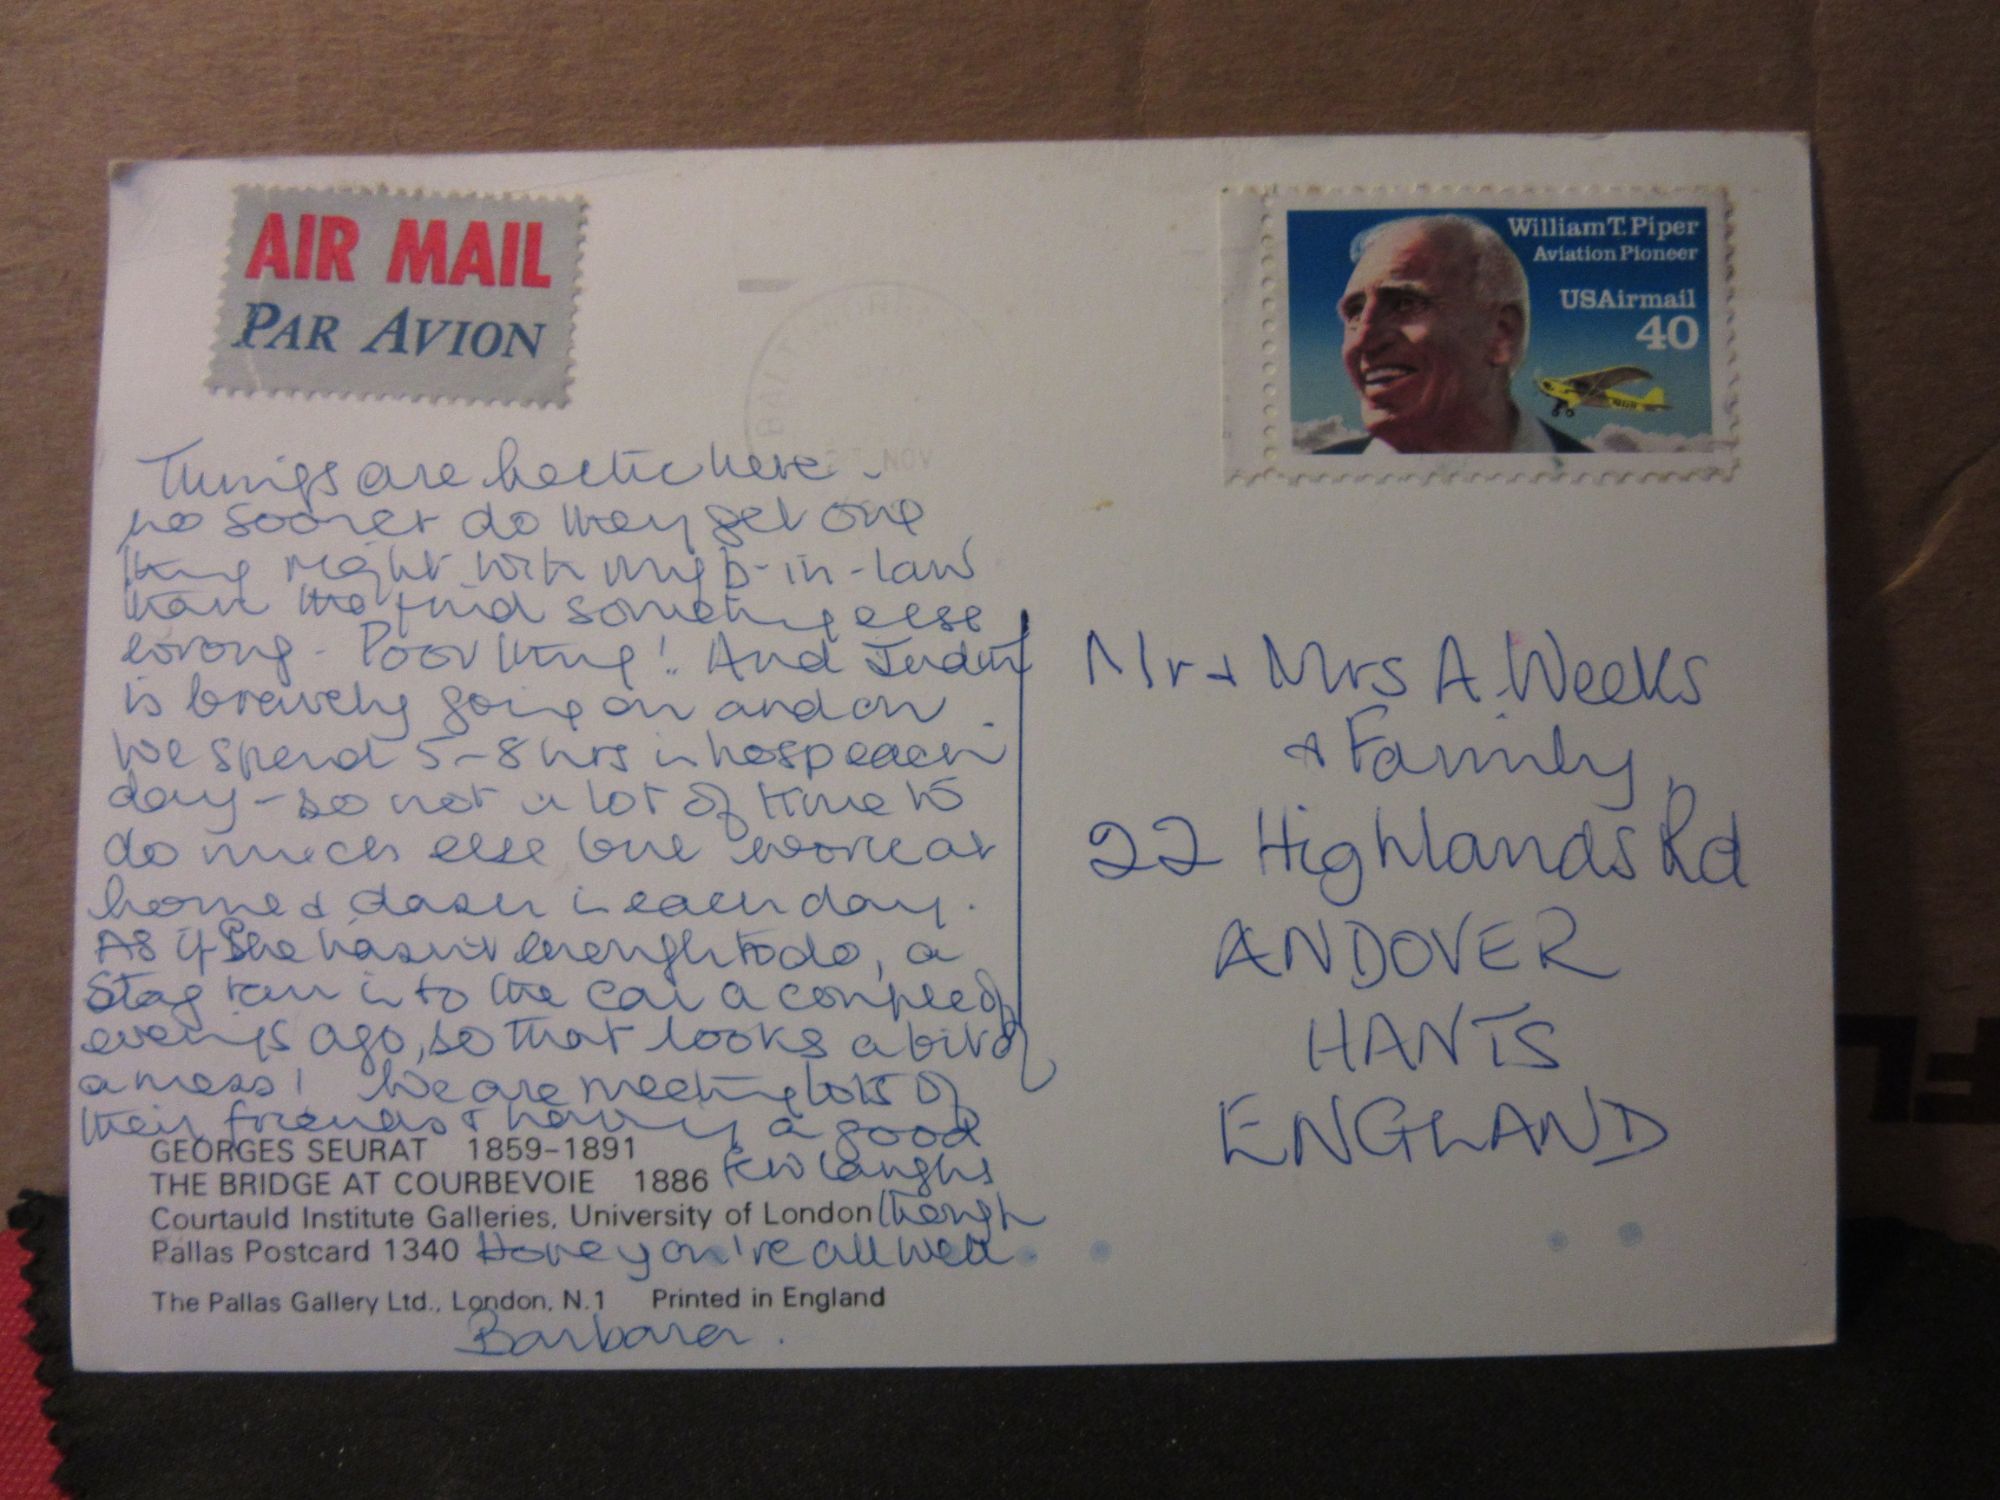 AIR MAIL
PAR AVION
William T. Piper
Aviation Pioneer
USAirmail
40
NOV
Things are hectic here -
no sooner do they get one
thing right with my b-in-law
than the find something else
wrong - Poor thing! And Judith
is bravely going on and on.
We spend 5-8 hrs in hosp each
day - so not a lot of time to
do much else but work at
home & dash in each day.
As if she hasn't enough to do, a
Stag ran into the car a couple of
evenings ago, so that looks a bit of
a mess! We are meeting lots of
their friends & having a good
few laughs
though
Hope you're all well.
Barbara.
GEORGES SEURAT 1859-1891
THE BRIDGE AT COURBEVOIE 1886
Courtauld Institute Galleries, University of London
Pallas Postcard 1340
The Pallas Gallery Ltd., London, N.1 Printed in England
Mr & Mrs A. Weeks
& Family,
22 Highlands Rd
ANDOVER
HANTS
ENGLAND